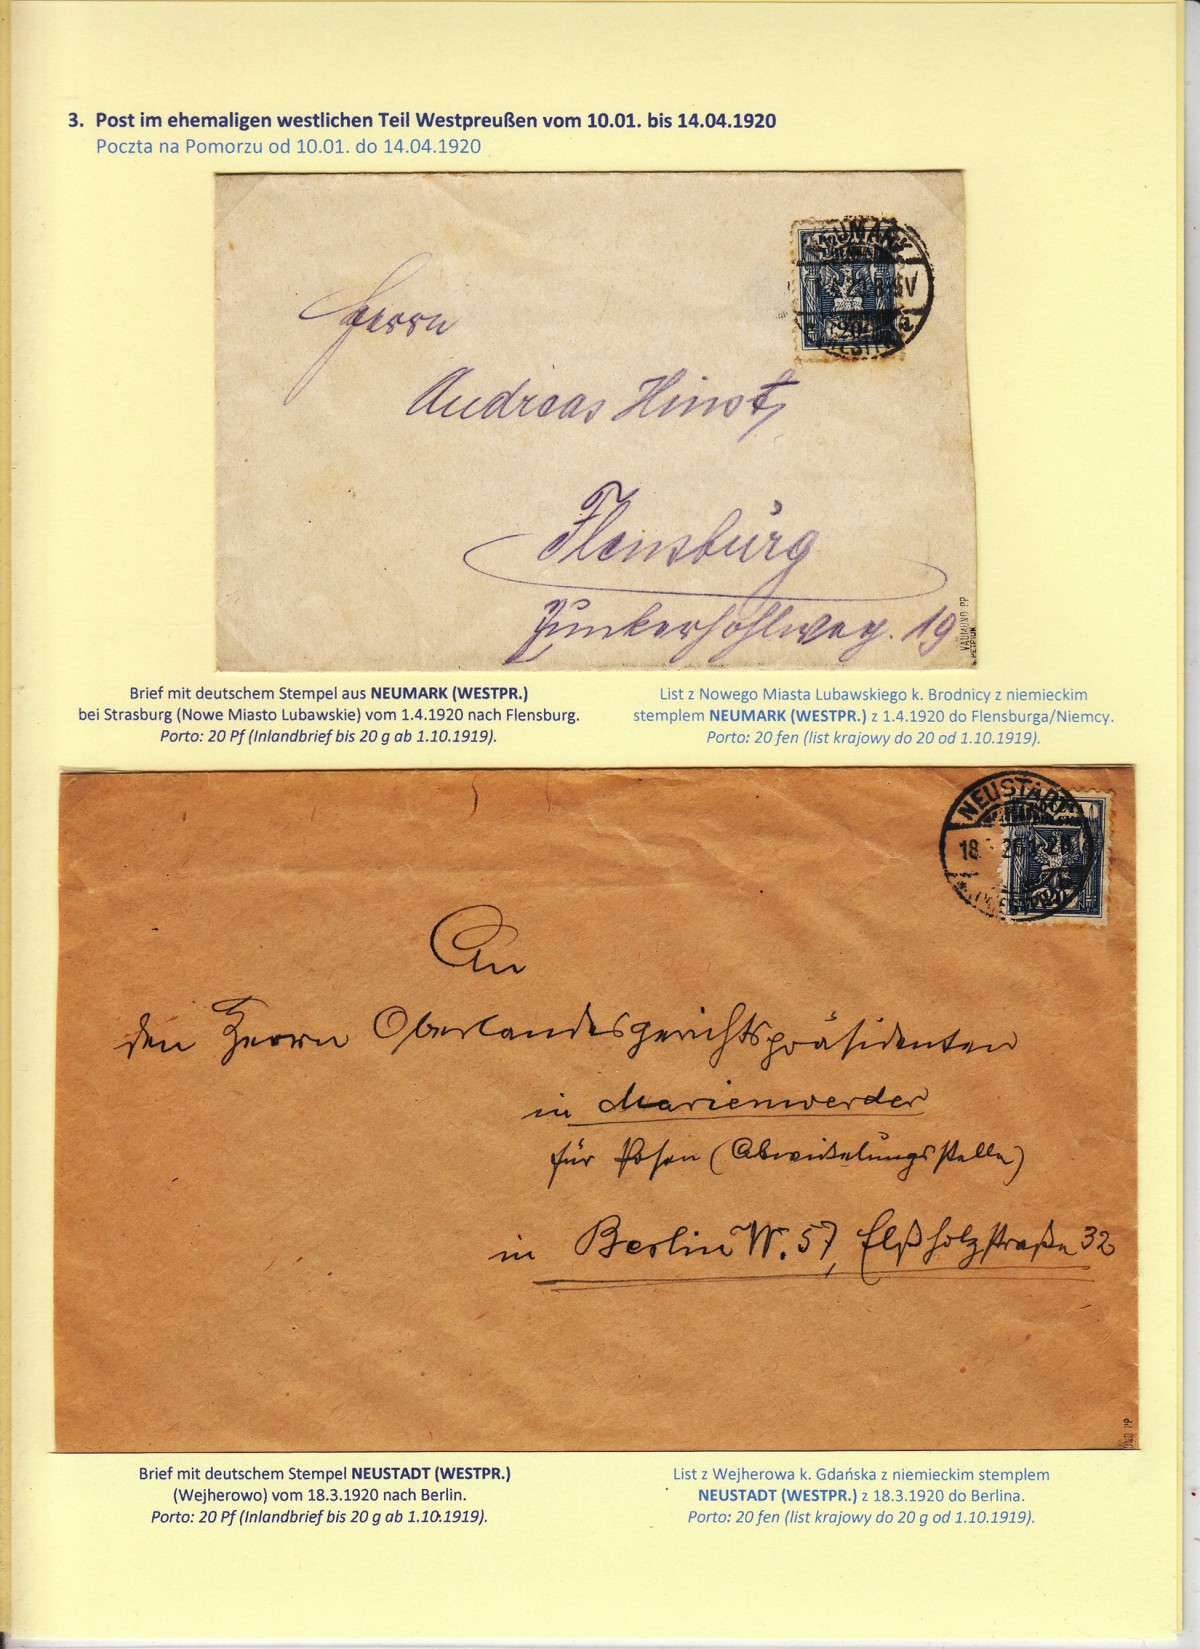 3. Post im ehemaligen westlichen Teil Westpreußen vom 10.01. bis 14.04.1920
Poczta na Pomorzu od 10.01. do 14.04.1920
NEUMARK
1.4.20 8-9V
20
a
Herrn
Andreas Hinst,
Flensburg
Junkerhohlweg. 19
VAUMUND PP
Brief mit deutschem Stempel aus NEUMARK (WESTPR.)
bei Strasburg (Nowe Miasto Lubawskie) vom 1.4.1920 nach Flensburg.
Porto: 20 Pf (Inlandbrief bis 20 g ab 1.10.1919).
List z Nowego Miasta Lubawskiego k. Brodnicy z niemieckim
stemplem NEUMARK (WESTPR.) z 1.4.1920 do Flensburga/Niemcy.
Porto: 20 fen (list krajowy do 20 od 1.10.1919).
NEUSTADT
18. 20 1-2
An
den Herrn Oberlandesgerichtspräsidenten
in Marienwerder
für Posen (Abwickelungsstelle)
in Berlin W. 57, Elßholzstraße 32
Brief mit deutschem Stempel NEUSTADT (WESTPR.)
(Wejherowo) vom 18.3.1920 nach Berlin.
Porto: 20 Pf (Inlandbrief bis 20 g ab 1.10.1919).
List z Wejherowa k. Gdańska z niemieckim stemplem
NEUSTADT (WESTPR.) z 18.3.1920 do Berlina.
Porto: 20 fen (list krajowy do 20 g od 1.10.1919).